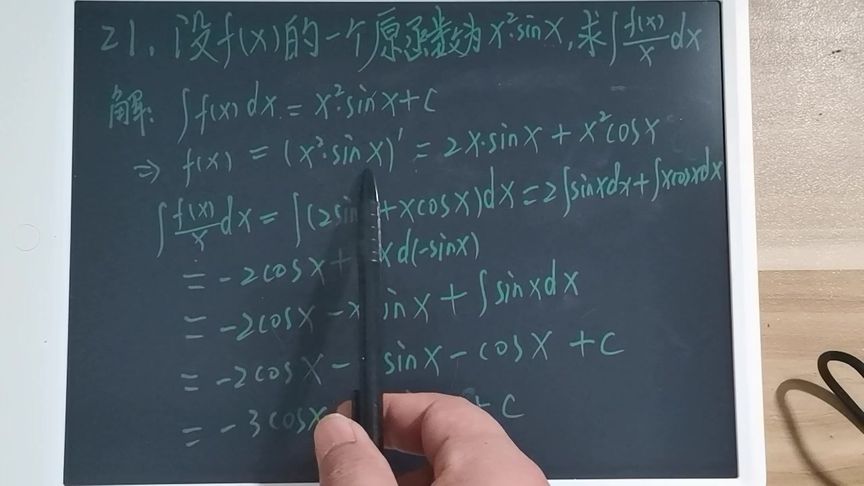 21.设f(x)的一个原函数为x²·sinx,求∫f(x)/x dx
解:∫f(x)dx=x²·sinx+C
⇒ f(x)=(x²·sinx)'=2x·sinx+x²cosx
∫f(x)/x dx=∫(2sin +xcosx)dx=2∫sinxdx+∫xcosxdx
=-2cosx+ xd(-sinx)
=-2cosx-x inx+∫sinxdx
=-2cosx- sinx-cosx+C
=-3cosx +C